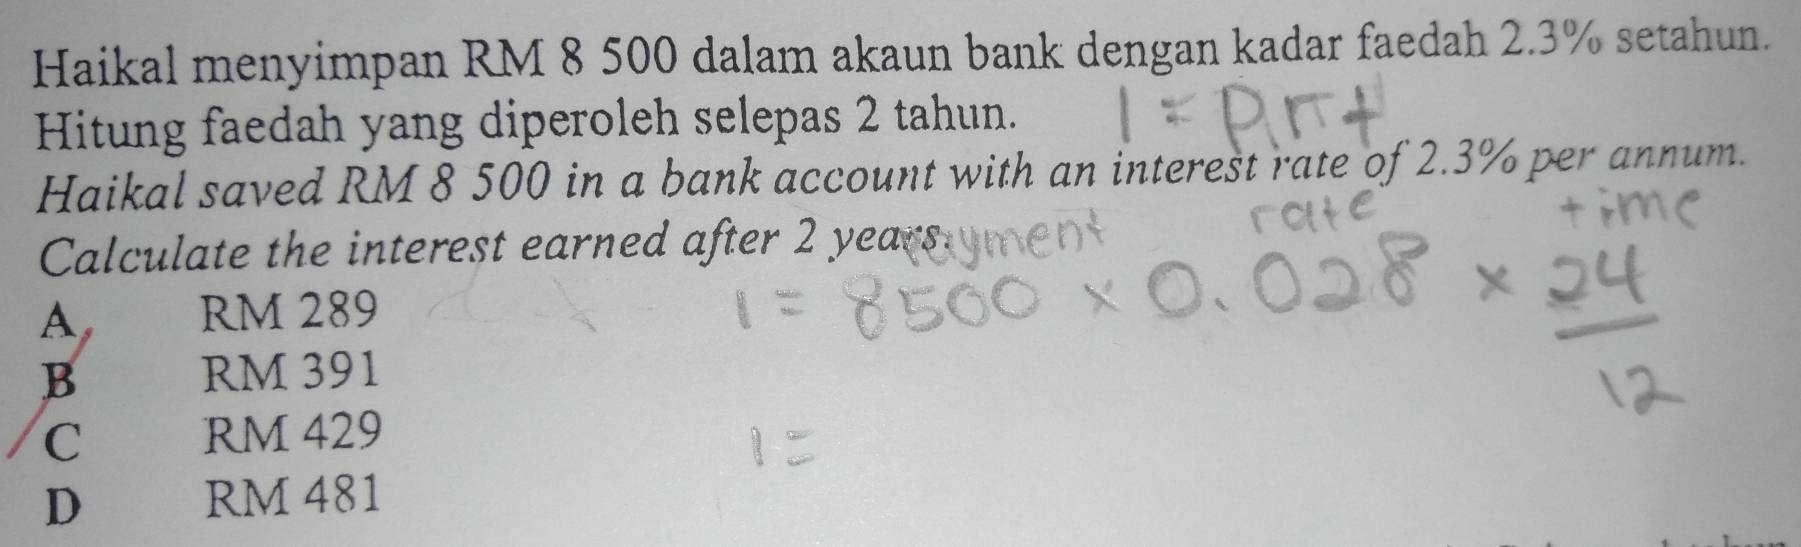 Haikal menyimpan RM 8 500 dalam akaun bank dengan kadar faedah 2.3% setahun.
Hitung faedah yang diperoleh selepas 2 tahun.
I = Prt
Haikal saved RM 8 500 in a bank account with an interest rate of 2.3% per annum.
Calculate the interest earned after 2 years.
payment rate time
I = 8500 × 0.028 × 24
12
A RM 289
B RM 391
C RM 429
I =
D RM 481